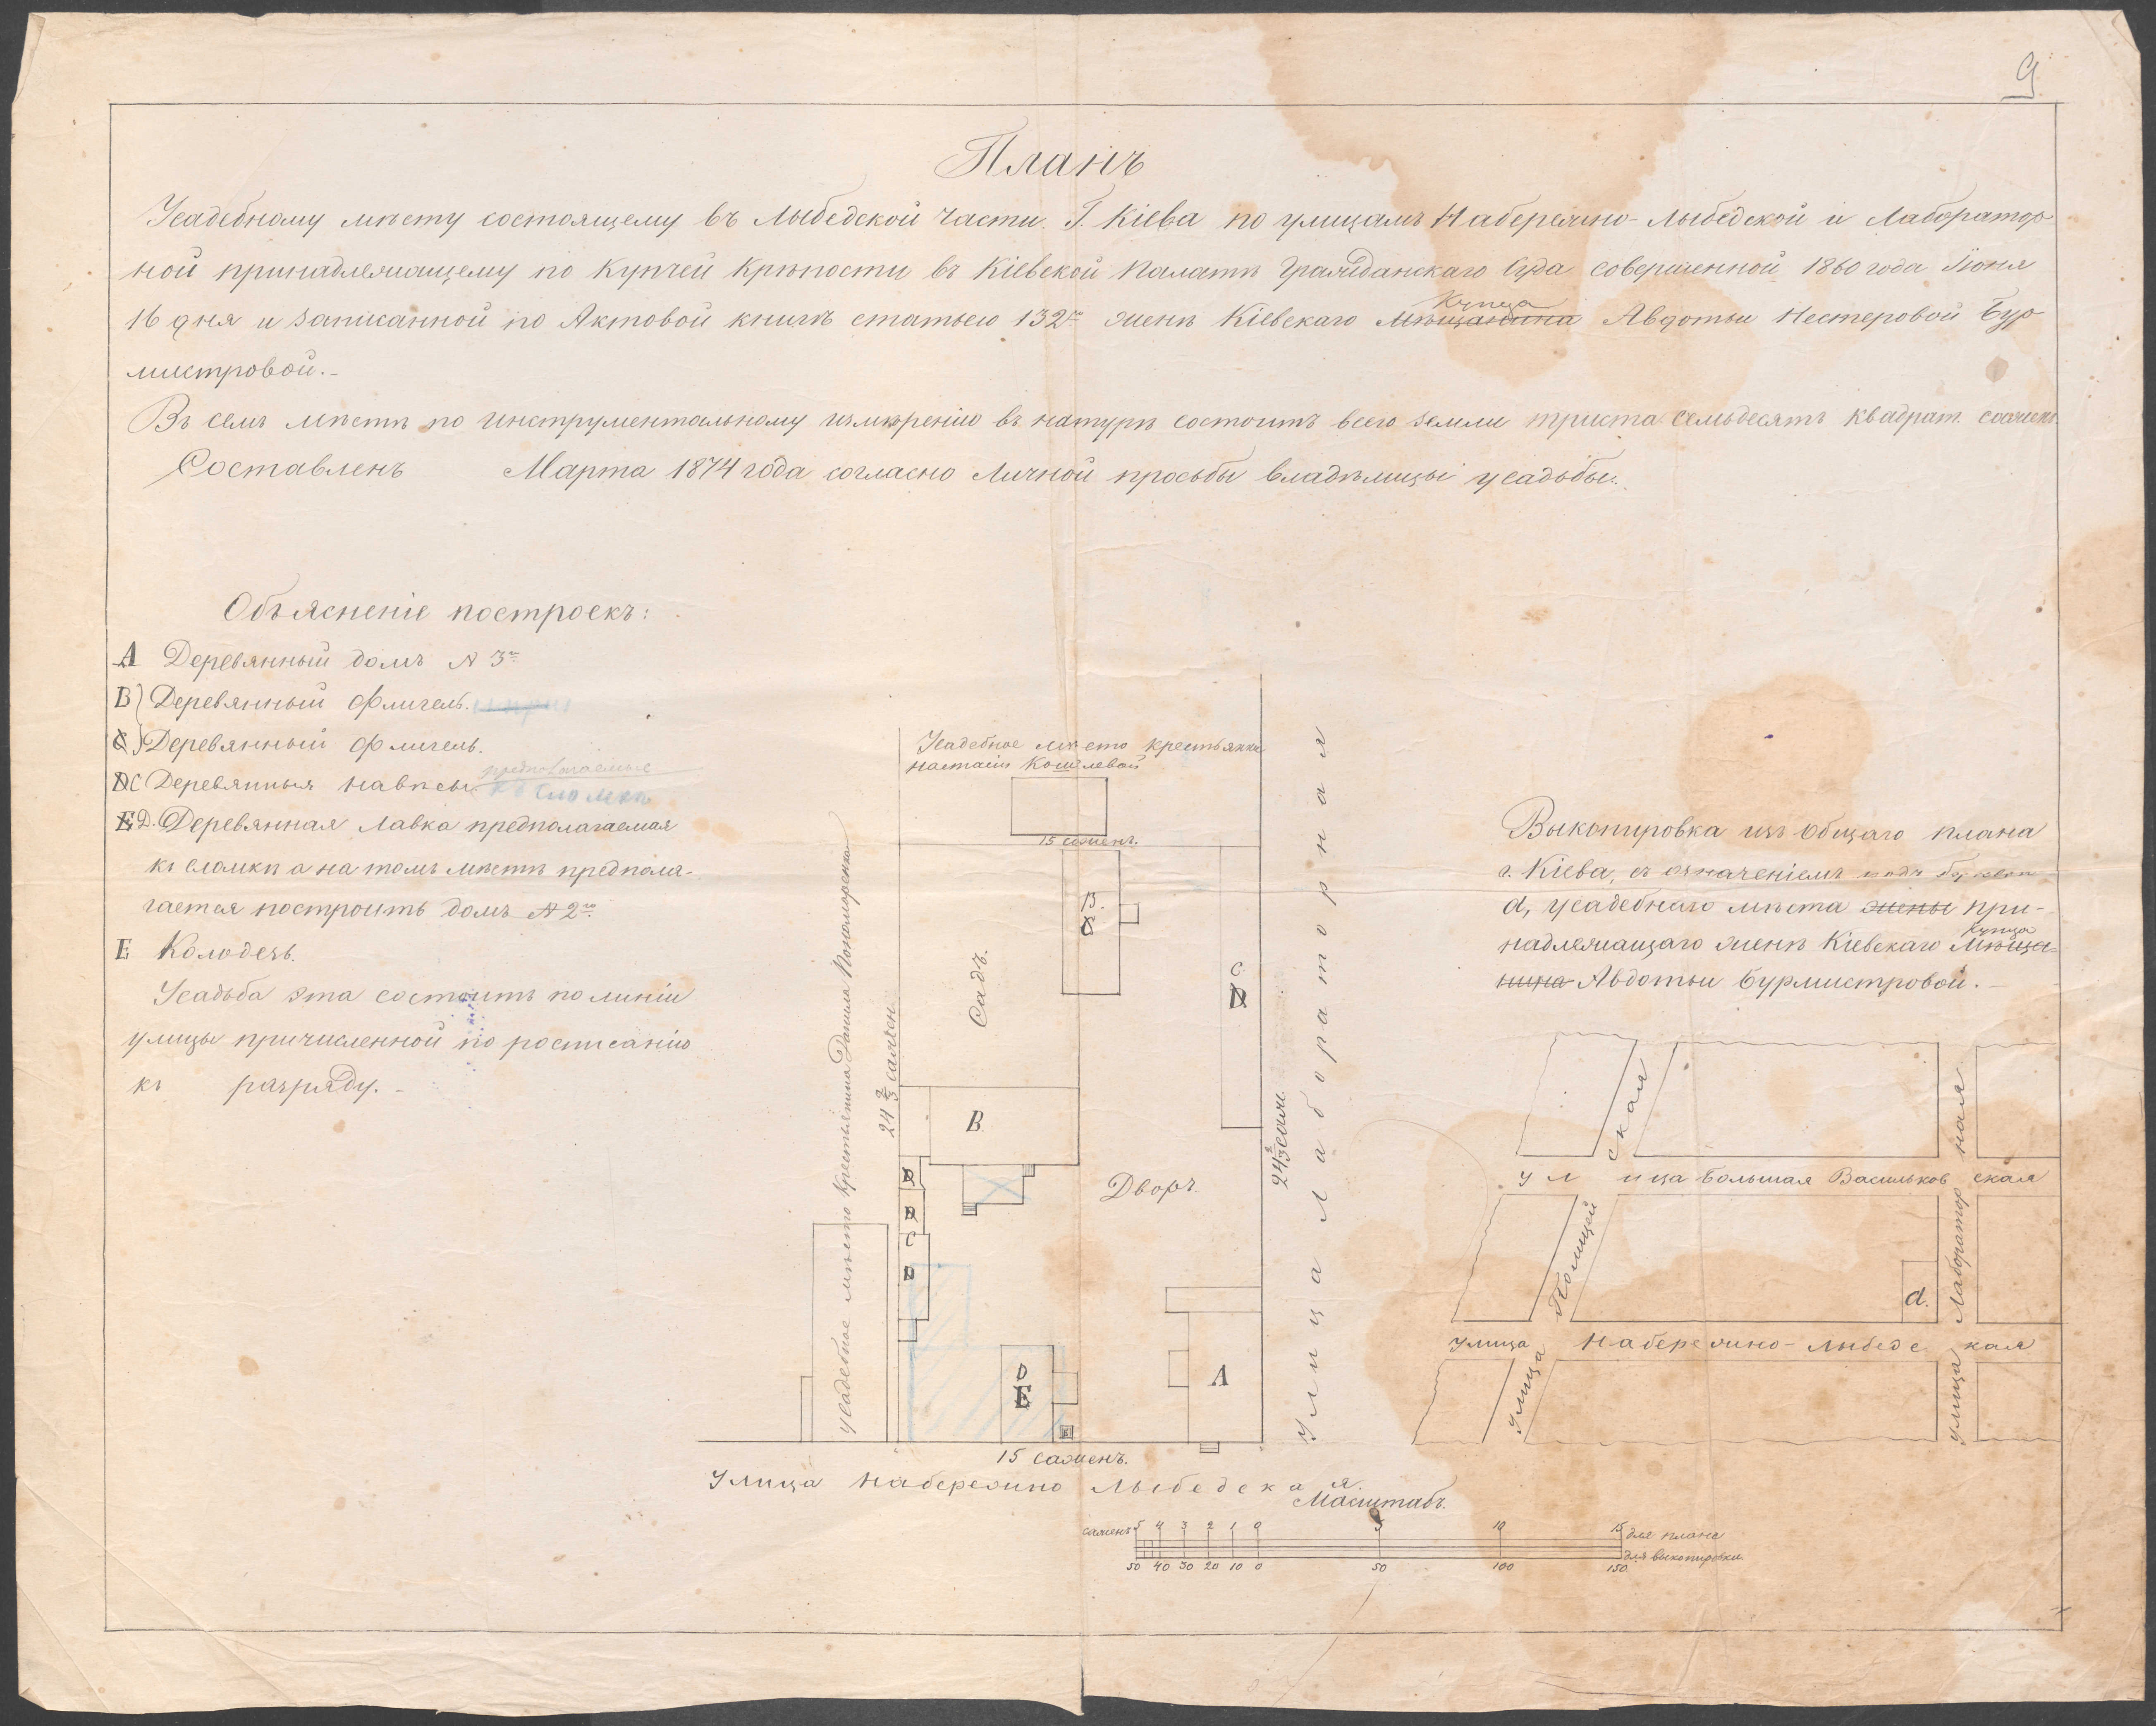 9
Планъ
Усадебному мѣсту состоящему въ Лыбедской части. Г. Кіева по улицамъ Набережно-Лыбедской и Лаборатор
ной принадлежащему по Купчей Крѣпости въ Кіевской Палатѣ Гражданскаго Суда совершенной 1860 года Іюня
16 дня и записанной по Актовой книгѣ статьею 132ю женѣ Кіевскаго Мѣщанина Купца Авдотьи Нестеровой Бур
мистровой.-
Въ семъ мѣстѣ по инструментальному измѣренію въ натурѣ состоитъ всего земли триста семьдесятъ квадрат. сажень.
Составленъ Марта 1874 года согласно личной просьбы владѣлицы усадьбы.
Объясненіе построекъ:
А Деревянный домъ № 3й
В Деревянный Флигель.
С Деревянный Флигель.
DC Деревянныя навѣсы. предполагаемые
къ сломкѣ
ЕД. Деревянная Лавка предполагаемая
къ сломкѣ а на томъ мѣстѣ предпола-
гается построить домъ № 2й
Е Колодезь.
Усадьба эта состоитъ по линіи
улицы причисленной по росписанію
къ разряду.-
Усадебное мѣсто крестьянки
Настасіи Кошлевой
15 сажень.
В.
С
Садъ.
С
D
усадебное мѣсто крестьянина Данила Пономаренка
24 2/3 сажен
24 2/3 саж.
Улица Лабораторная
В
D
D
С
D
Дворъ.
D
Е
А
15 сажень.
Улица Набережно Лыбедская.
Масштабъ.
сажень 5 4 3 2 1 0 5 10 15 для плана
50 40 30 20 10 0 50 100 150 для выкопировки.
Выкопировка изъ общаго плана
г. Кіева, съ означеніемъ подъ буквою
d, усадебнаго мѣста жены при-
надлежащаго женѣ Кіевскаго Купца Мѣща-
нина Авдотьи Бурмистровой.-
улица Большая Васильковская
улица Полицейская
улица Лабораторная
d.
улица Набережно-Лыбедская